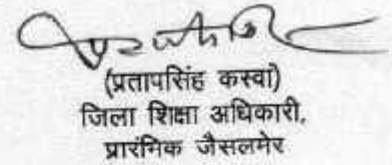 (प्रतापसिंह कस्वा)
जिला शिक्षा अधिकारी,
प्रारंमिक जैसलमेर